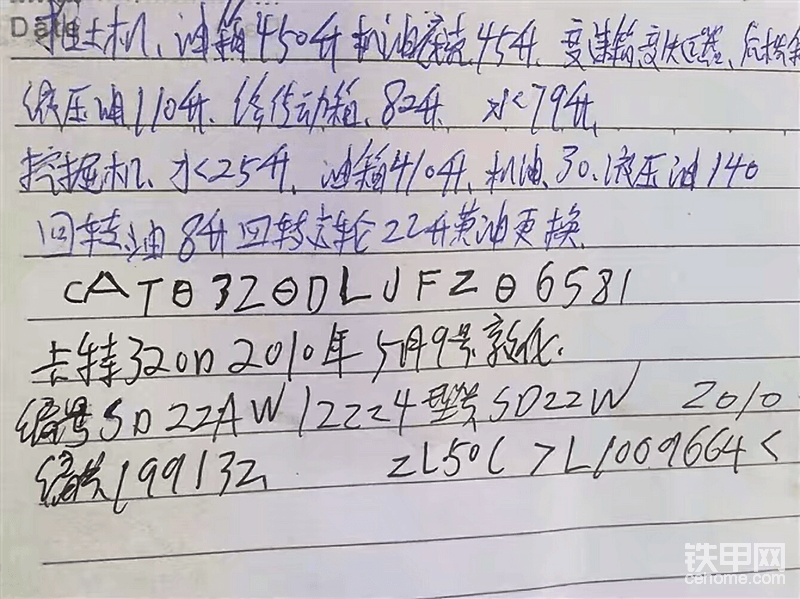 Date
推土机、油箱450升 机油底壳45升、变速箱变矩器、后桥
液压油110升、终传动箱、82升 水<79升,
挖掘机、水<25升、油箱410升、机油、30、液压油140
回转油 8升 回转齿轮 22升黄油更换
CAT0320DLJFZ06581
卡特320D 2010年 5月9号敦化.
编号SD22AW12224型号SD22W 2010
编号199132, ZL50C >L1009664<
铁甲网
cehome.com